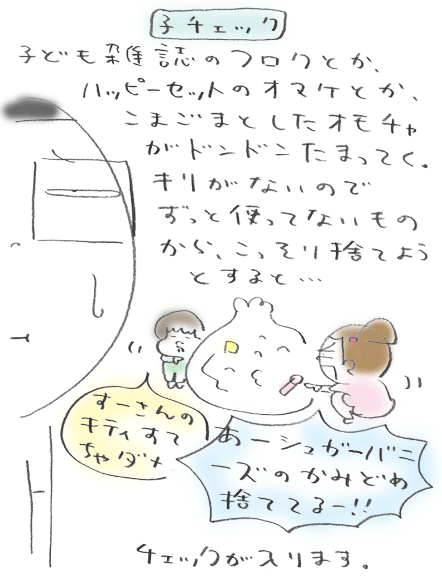 子チェック
子ども雑誌のフロクとか、
ハッピーセットのオマケとか、
こまごまとしたオモチャ
がドンドンたまってく。
キリがないので
ずっと使ってないもの
から、こっそり捨てよう
とすると…
すーさんの
キティすて
ちゃダメ
あーシュガーバニ
ーズのかみどめ
捨ててるー!!
チェックが入ります。